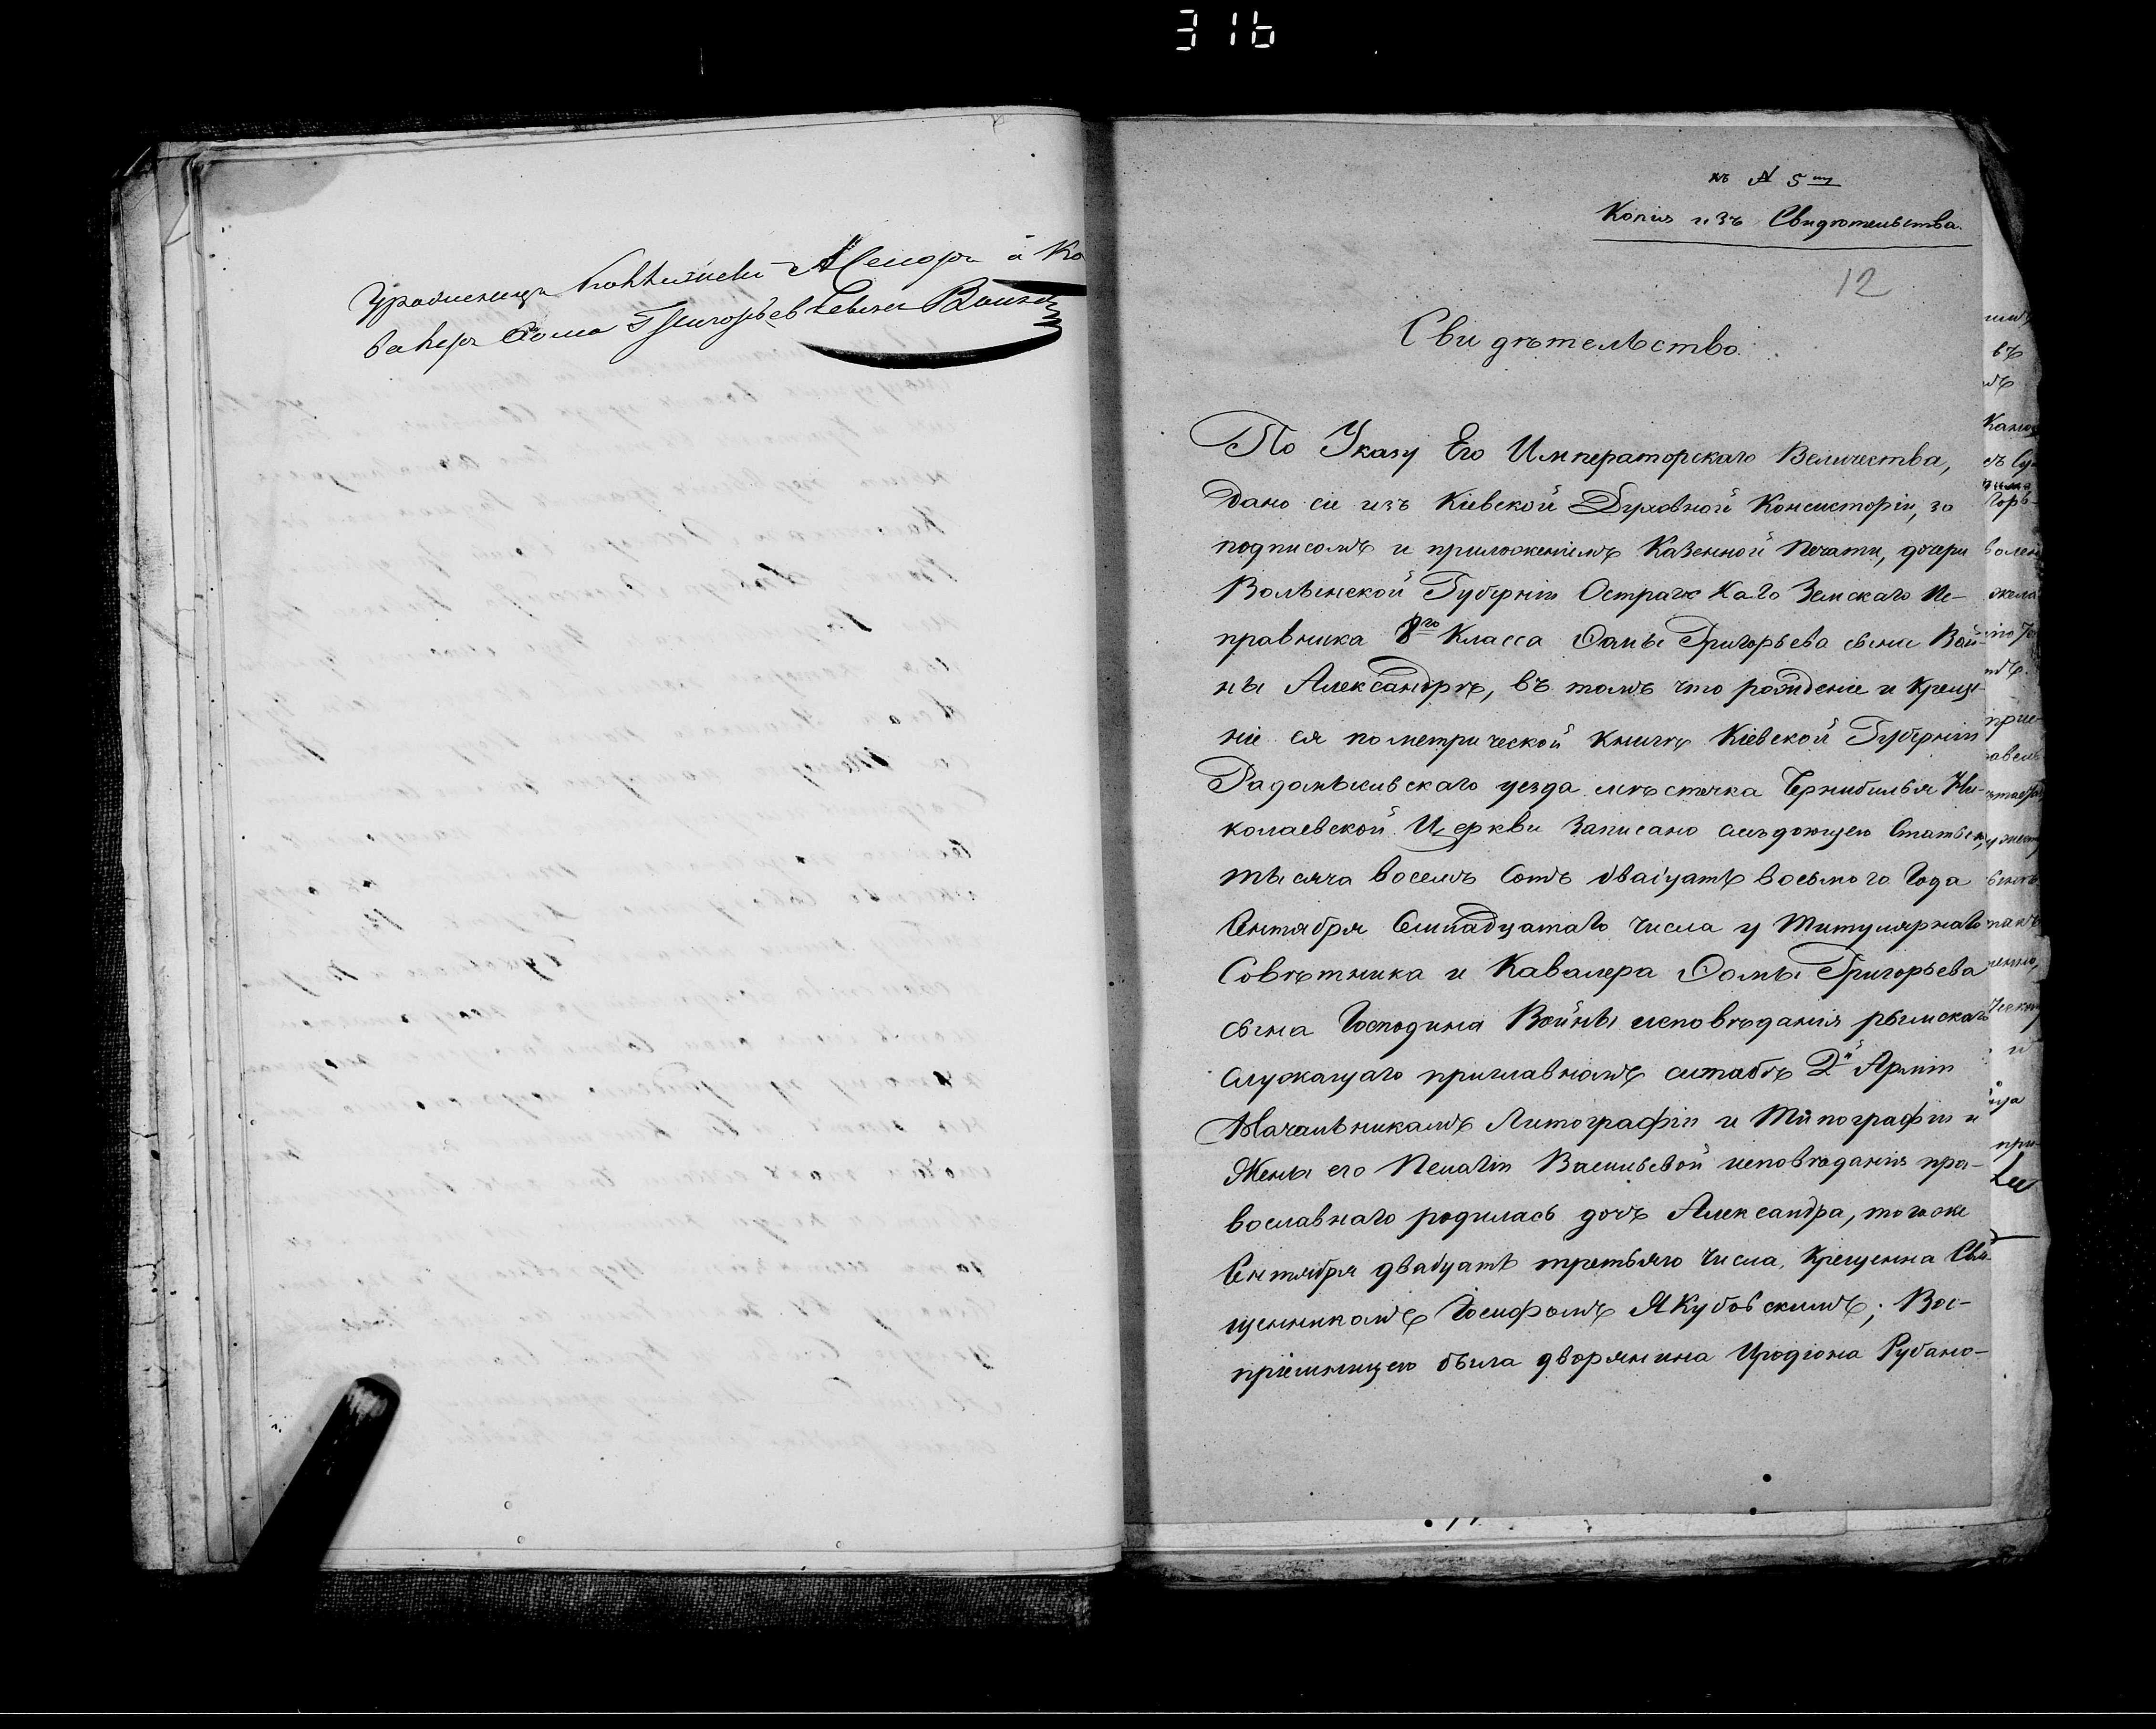 316
Коллежскій Асесоръ и Ка
валеръ Ѳома Григорьевъ сынъ Война
къ № 5му
Копія изъ Свидѣтельства.
12
Свидѣтельство.
По Указу Его Императорскаго Величества,
дано сіе изъ Кіевской Духовной Консисторіи, за
подписомъ и приложеніемъ Казенной Печати, дочери
Волынской Губерніи Острожскаго Земскаго Ис-
правника 8го Класса Ѳомы Григорьева сына Вой-
ны Александрѣ, въ томъ что рожденіе и креще-
ніе ея по метрической книгѣ Кіевской Губерніи
Радомысльскаго уезда мѣстечка Чернобылья Ни-
колаевской Церкви записано слѣдующею статьею,
тысяча восемь сотъ двадцать восьмого Года
Сентября Семнадцатаго числа у Титулярнаго
Совѣтника и Кавалера Ѳомы Григорьева
сына Господина Войны исповѣданія рымскаго
служащаго приглавномъ штабѣ 2й Арміи
Начальникомъ Литографіи и Типографіи и
Жены его Пелагіи Васильевой исповѣданія пра-
вославнаго родилась дочь Александра, тогоже
Сентября двадцать третьяго числа, Крещенна Свя-
щенникомъ Іосифомъ Якубовскимъ; Вос-
пріемницею была дворянина Иродіона Рубано-